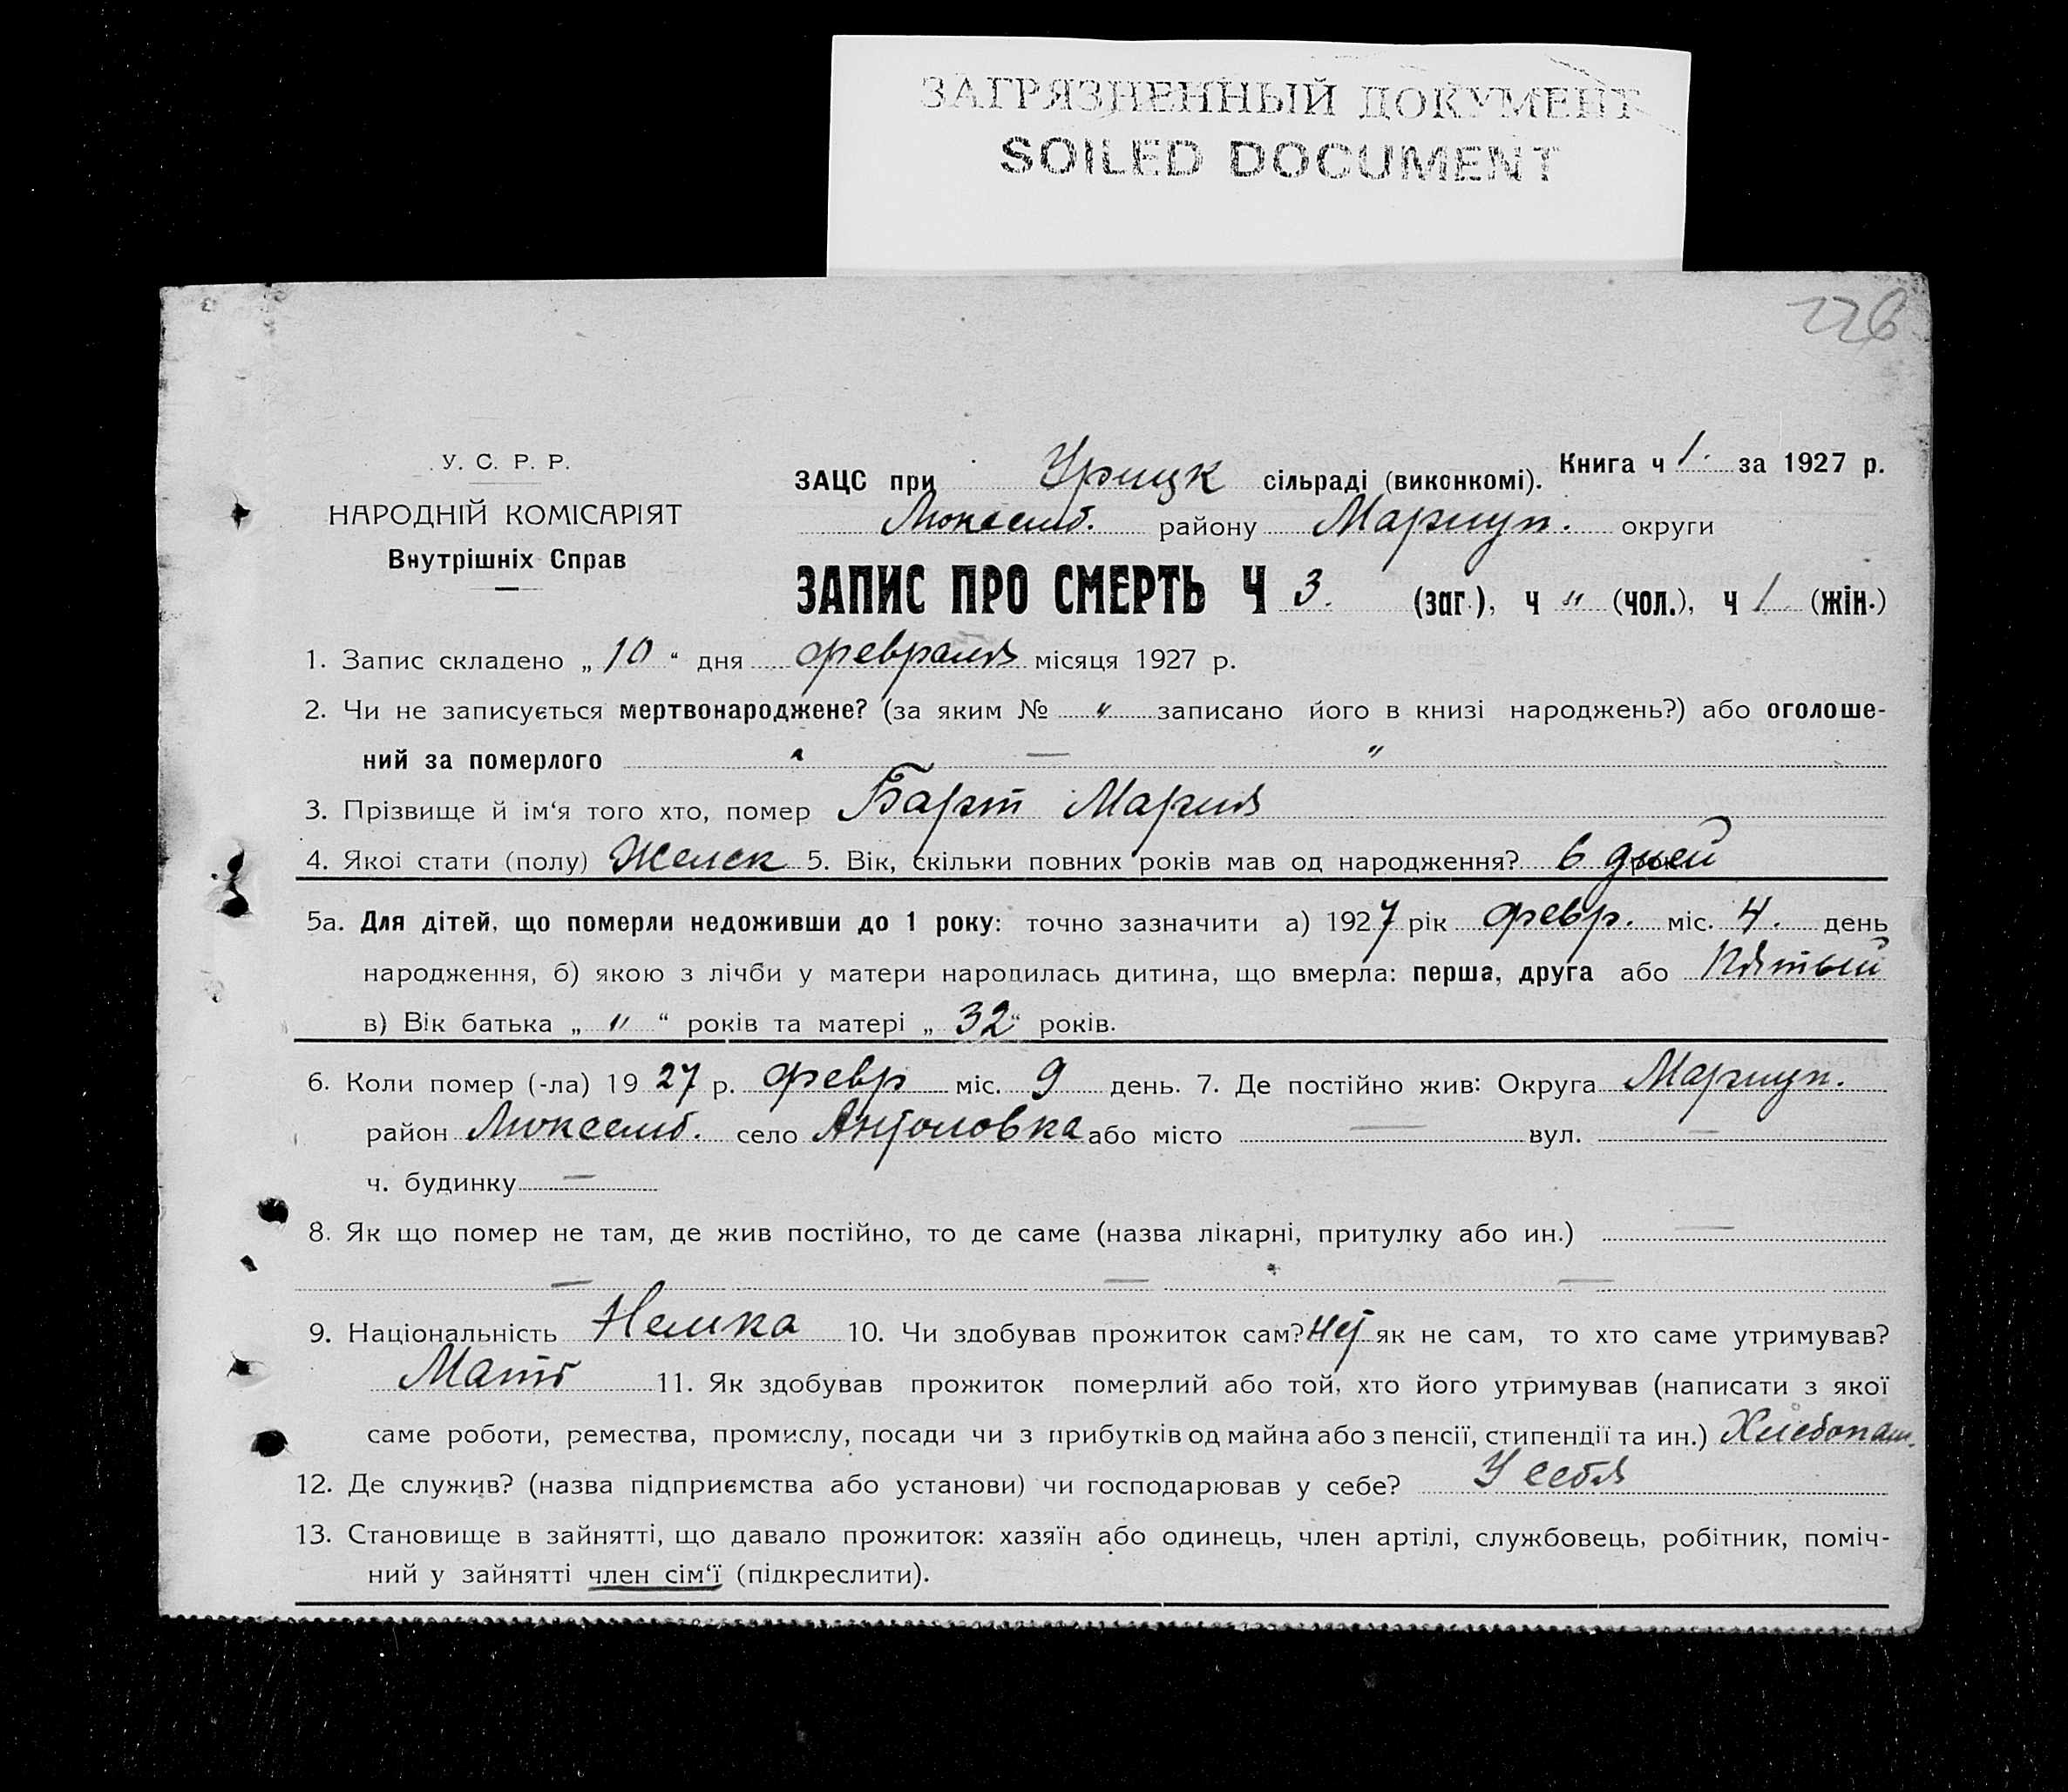 ЗАГРЯЗНЕННЫЙ ДОКУМЕНТ
SOILED DOCUMENT
226
У. С. Р. Р.
НАРОДНІЙ КОМІСАРІЯТ
Внутрішніх Справ
Книга ч 1. за 1927 р.
ЗАЦС при Урицк сільраді (виконкомі).
Люксемб. району Мариуп. округи
ЗАПИС ПРО СМЕРТЬ Ч 3. (заг.), ч " (чол.), ч 1 (жін.)
1. Запис складено „ 10 “ дня февраля місяця 1927 р.
2. Чи не записується мертвонароджене? (за яким № " записано його в книзі народжень?) або оголоше-
ний за померлого " — "
3. Прізвище й ім‘я того хто, помер Барт Мария
4. Якої стати (полу) Женск 5. Вік, скільки повних років мав од народження? 6 дней
5а. Для дітей, що померли недоживши до 1 року: точно зазначити а) 1927 рік февр. міс. 4. день
народження, б) якою з лічби у матери народилась дитина, що вмерла: перша, друга або Пятый
в) Вік батька „ " “ років та матері „ 32 “ років.
6. Коли помер (-ла) 19 27 р. февр міс. 9 день. 7. Де постійно жив: Округа Мариуп.
район Люксемб. село або місто — вул. —
ч. будинку —
8. Як що помер не там, де жив постійно, то де саме (назва лікарні, притулку або ин.) —
— — —
9. Національність Немка 10. Чи здобував прожиток сам? Нет як не сам, то хто саме утримував?
Мать 11. Як здобував прожиток померлий або той, хто його утримував (написати з якої
саме роботи, ремества, промислу, посади чи з прибутків од майна або з пенсії, стипендії та ин.) Хлебопаш.
12. Де служив? (назва підприємства або установи) чи господарював у себе? У себя
13. Становище в зайнятті, що давало прожиток: хазяїн або одинець, член артілі, службовець, робітник, поміч-
ний у зайнятті член сім‘ї (підкреслити).